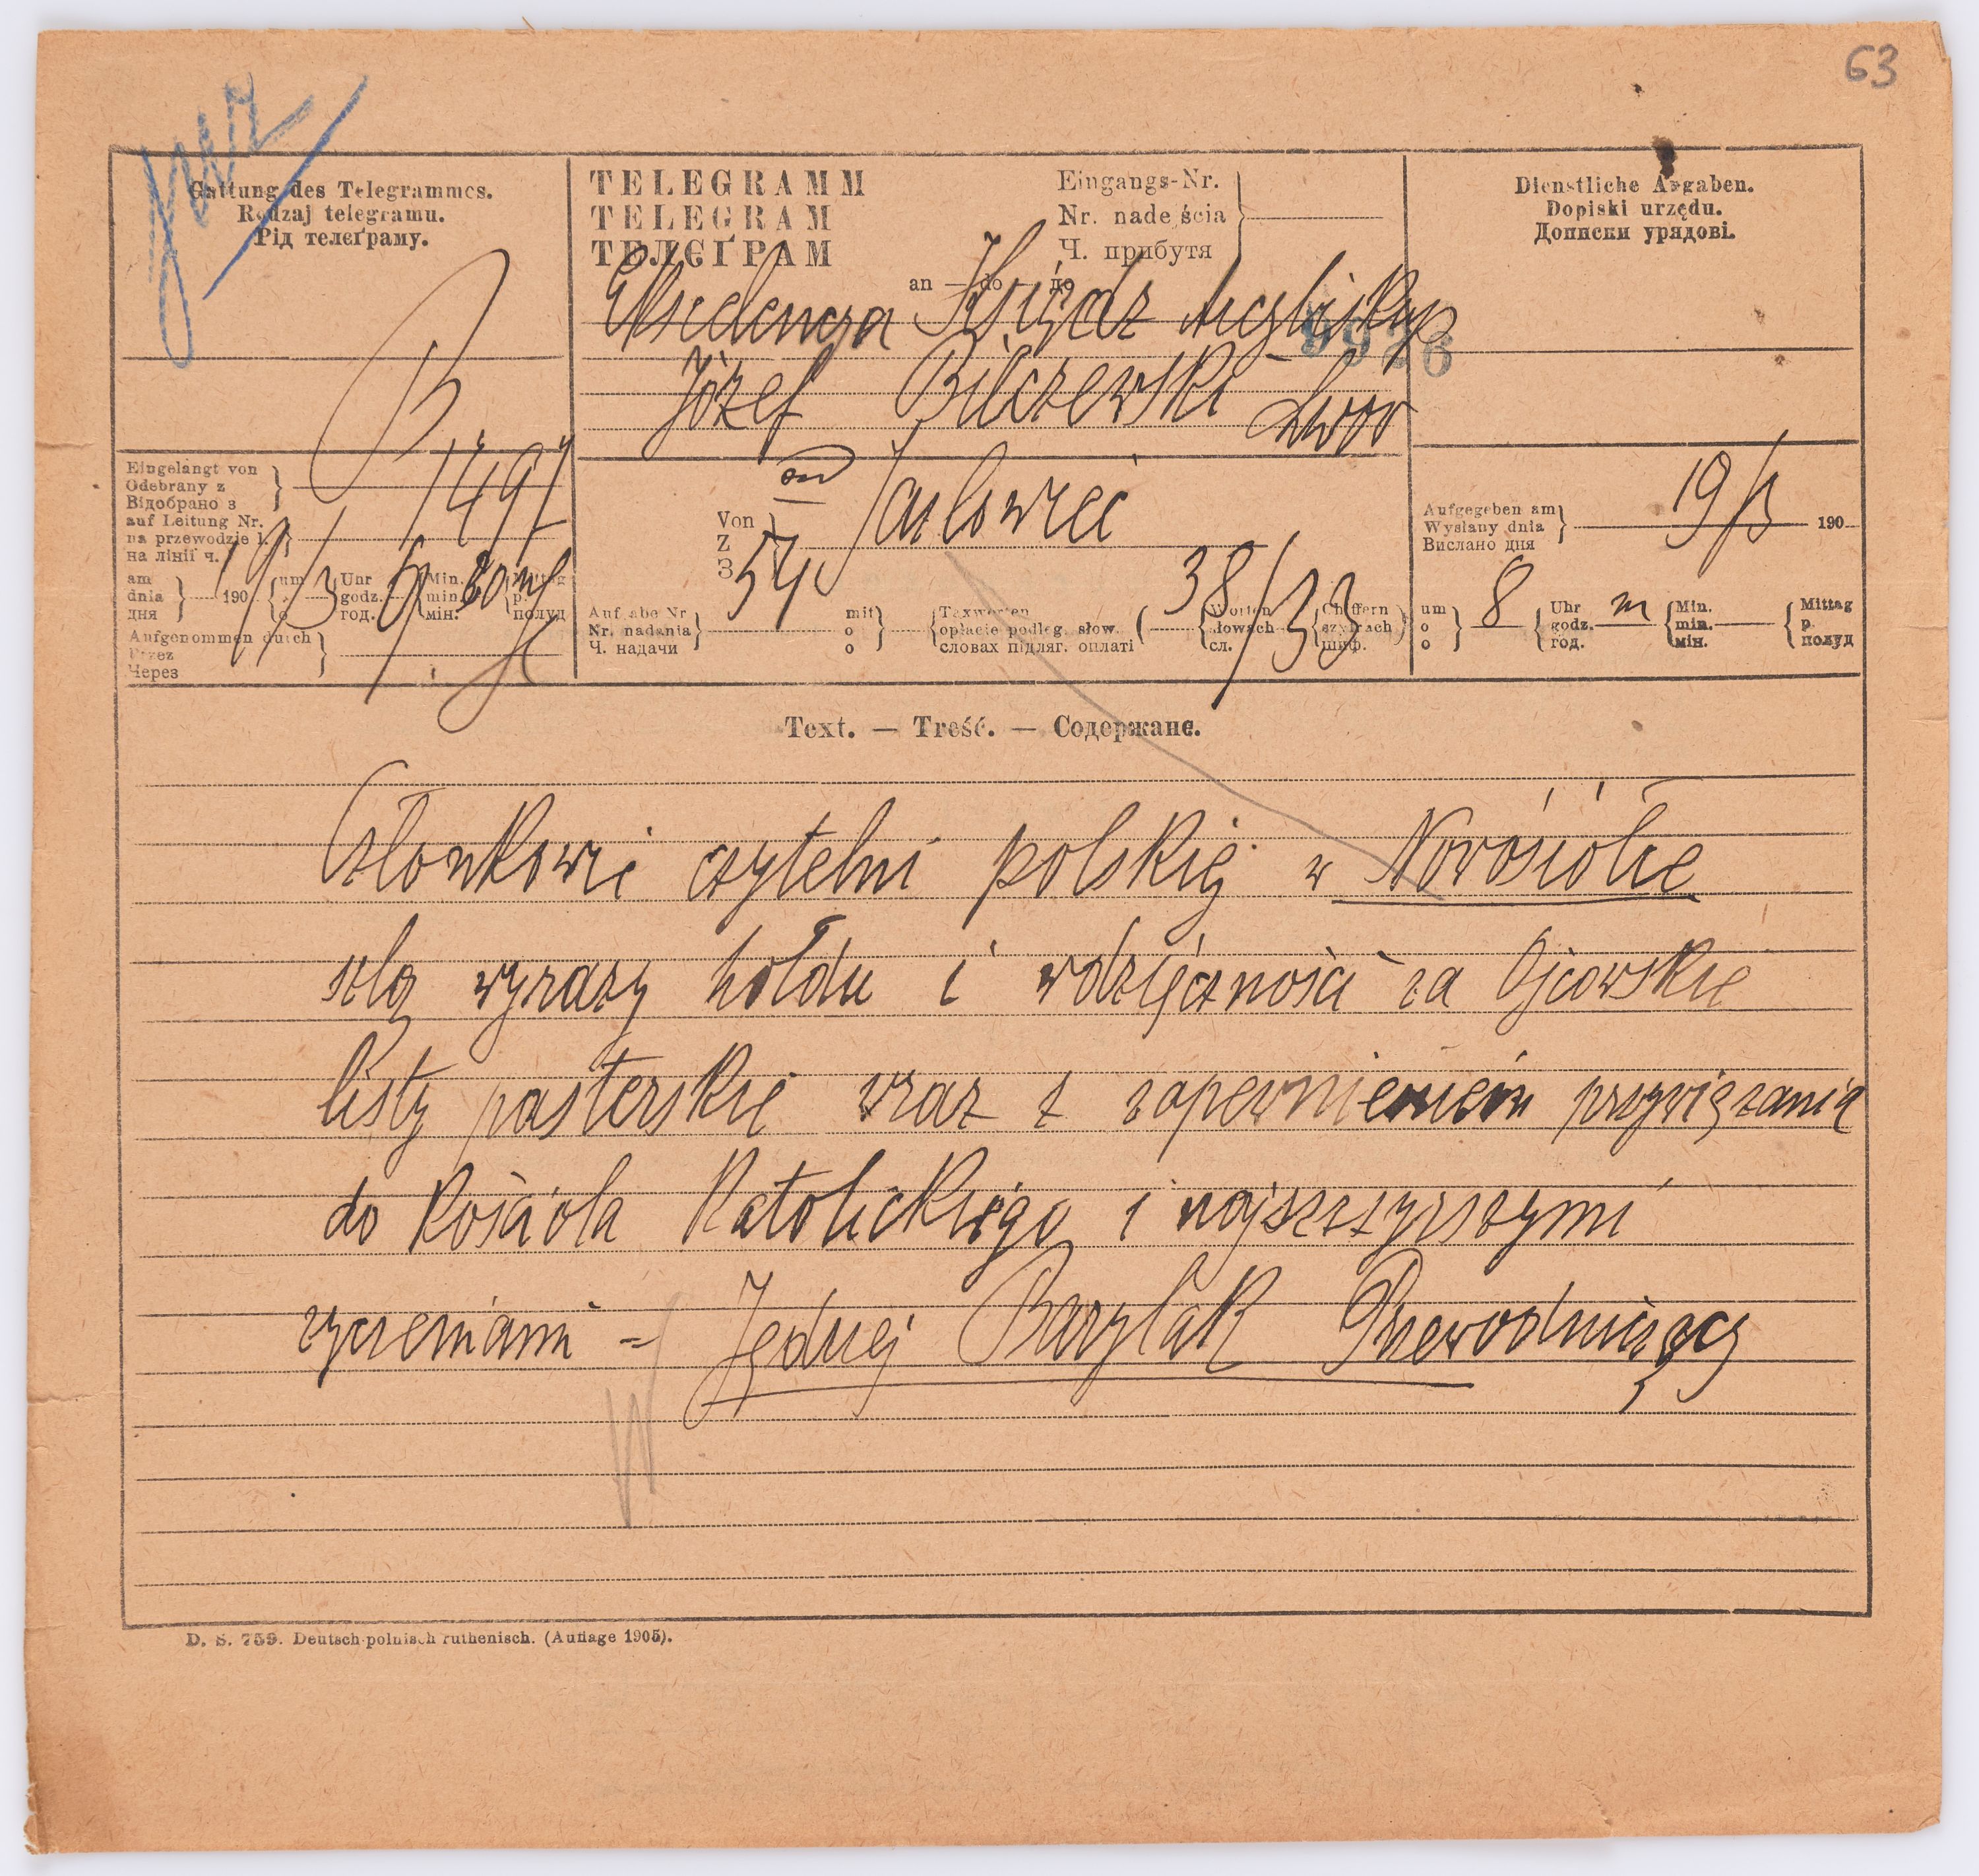 63
Gattung des Telegrammes.
Rodzaj telegramu.
Рід телєґраму.
TELEGRAMM
TELEGRAM
ТЕЛЄҐРАМ
Eingangs-Nr.
Nr. nadejścia
Ч. прибутя
an — do — до
Dienstliche Angaben.
Dopiski urzędu.
Дописки урядові.
Ekscelencya Ksiądz Arcybiskup
Józef Bilczewski Lwów
Eingelangt von
Odebrany z
Відобрано з
auf Leitung Nr.
na przewodzie l.
на лінії ч.
am
dnia
дня
19/3
190
um
o
Uhr
godz.
год.
Min.
min.
мін.
Mittag
p.
полуд
Aufgenommen durch
Przez
Через
Von
Z
З
Jazłowiec
Aufgabe Nr.
Nr. nadania
Ч. надачи
54
mit
o
o
Taxworten
opłacie podleg. słow.
словах підляг. оплаті
38/33
Worten
słowach
сл.
Chiffern
szyfrach
шиф.
Aufgegeben am
Wysłany dnia
Вислано дня
19/3
190
um
o
о
8
Uhr
godz.
год.
m
Min.
min.
мін.
Mittag
p.
полуд
Text. — Treść. — Содержанє.
Członkowie czytelni polskiej w Nowosiółce
ślą wyrazy hołdu i wdzięczności za Ojcowskie
listy pasterskie wraz z zapewnieniem przywiązania
do Kościoła Katolickiego i najszczyrszymi
życzeniami = Jędrzej Barylak Przewodniczący
D. S. 759. Deutsch-polnisch-ruthenisch. (Auflage 1905).